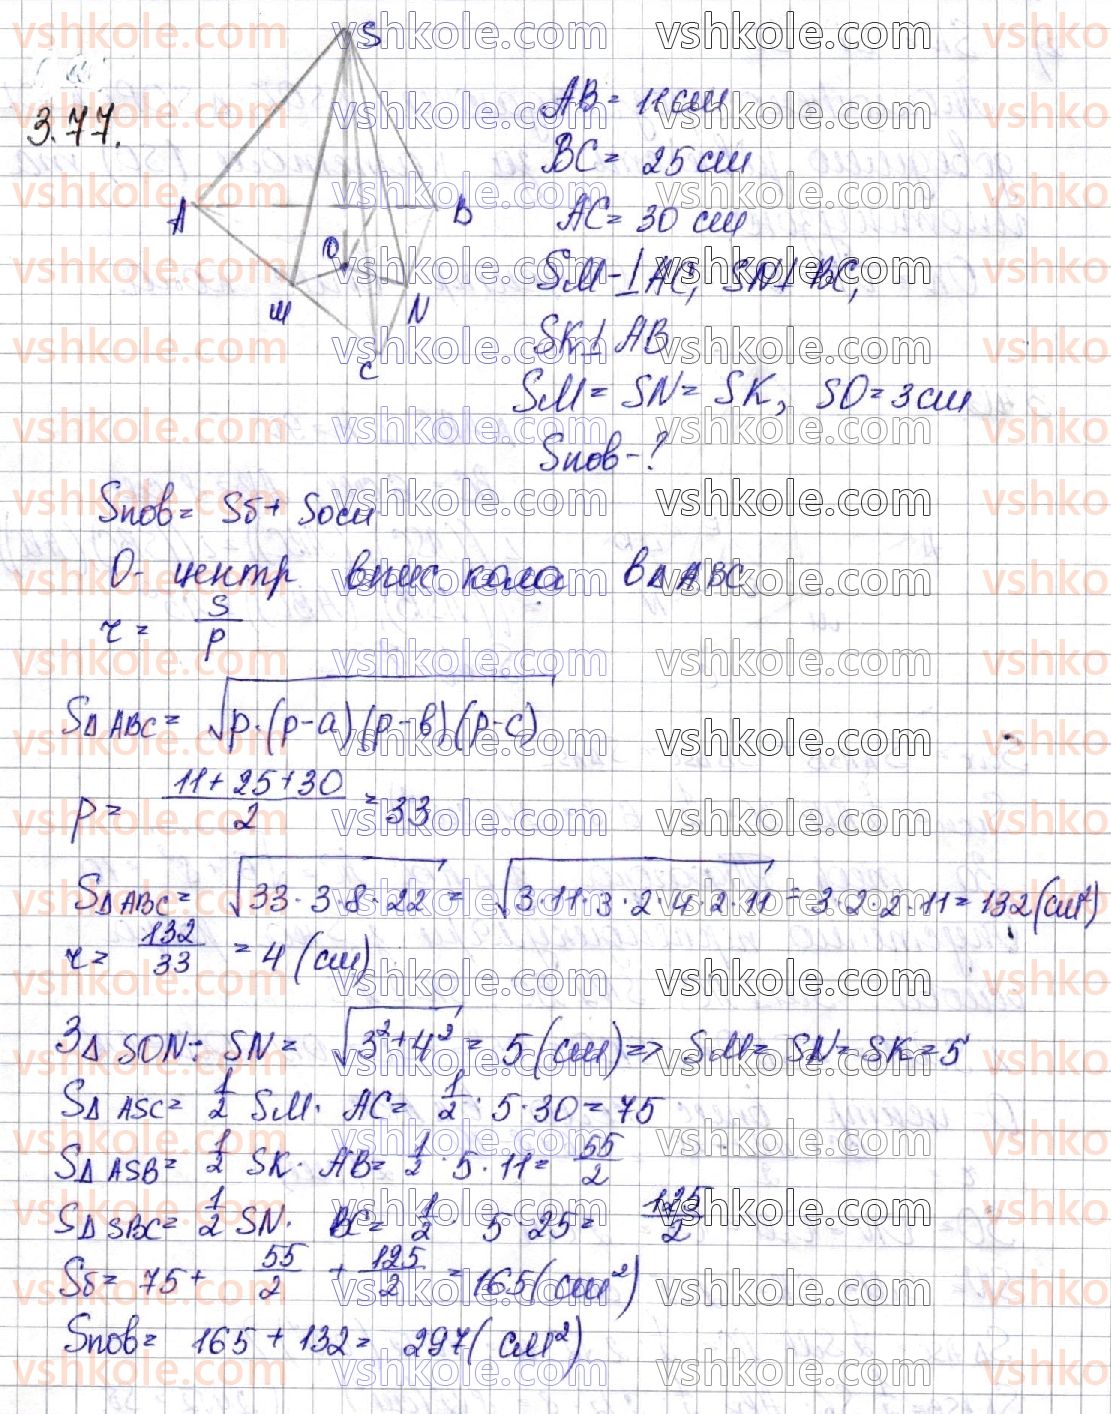 3.77.
S
A
B
O
M
N
C
AB = 11 см
BC = 25 см
AC = 30 см
SM ⊥ AC, SN ⊥ BC,
SK ⊥ AB
SM = SN = SK, SO = 3 см
Sпов - ?
Sпов = Sб + Sосн
O - центр впис. кола в △ABC
r = S/p
S△ABC = √(p·(p-a)(p-b)(p-c))
p = (11+25+30)/2 = 33
S△ABC = √(33·3·8·22) = √(3·11·3·2·4·2·11) = 3·2·2·11 = 132 (см²)
r = 132/33 = 4 (см)
З △SON: SN = √(3²+4²) = 5 (см) => SM = SN = SK = 5
S△ASC = 1/2 SM · AC = 1/2 · 5 · 30 = 75
S△ASB = 1/2 SK · AB = 1/2 · 5 · 11 = 55/2
S△SBC = 1/2 SN · BC = 1/2 · 5 · 25 = 125/2
Sб = 75 + 55/2 + 125/2 = 165 (см²)
Sпов = 165 + 132 = 297 (см²)
vshkole.com